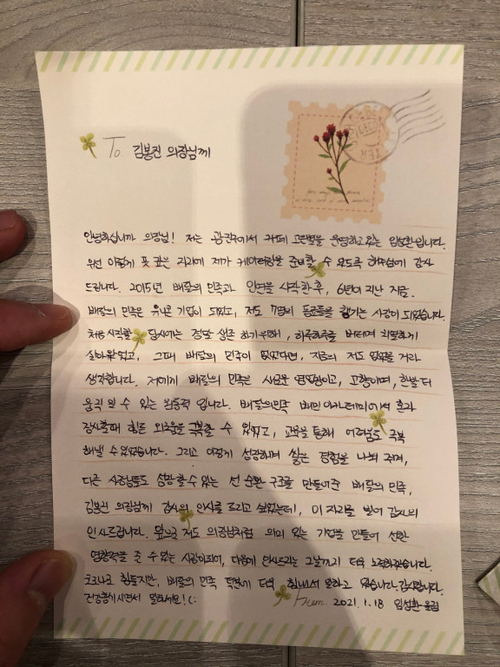 To 김봉진 의장님께
안녕하십니까 의장님! 저는 광진구에서 카페 고른햇살을 운영하고있는 임성환입니다.
우선 이렇게 뜻 깊은 자리에 제가 케이터링을 준비할 수 있도록 해주심에 감사
드립니다. 2015년 배달의 민족과 인연을 시작한 후, 6년이 지난 지금.
배달의 민족은 유니콘 기업이 되었고, 저도 7명의 동료들을 챙기는 사장이 되었습니다.
처음 시작할 당시에는 정말 생존하기위해, 하루하루를 버티며 치열하게
살아왔었고, 그때 배달의 민족이 없었다면, 지금의 저도 없었을 거라
생각합니다. 저에게 배달의 민족은 새로운 영업이고, 고향이며, 한발 더
움직일 수 있는 원동력 입니다. 배달의민족 배민아카데미에서 혼자
장사할때 힘든 외로움을 극복할 수 있었고, 교육을 통해 어려움도 극복
해낼 수 있었습니다. 그리고 이렇게 성장하며 쌓은 경험을 나눠 주며,
다른 사장님들도 성장할 수 있는 선 순환 구조를 만들어준 배달의 민족,
김봉진 의장님께 감사의 인사를 드리고 싶었는데, 이 자리를 빌어 감사의
인사드립니다. 앞으로 저도 의장님처럼 의미 있는 기업을 만들어 선한
영향력을 줄 수 있는 사람이되어, 다음에 인사드리는 그날까지 더욱 노력하겠습니다.
코로나로 힘들지만, 배달의 민족 덕분에 더욱 힘내서 일하고 있습니다. 감사합니다.
건강챙기시면서 일하세요! (:
From 2021. 1. 18 임성환 올림